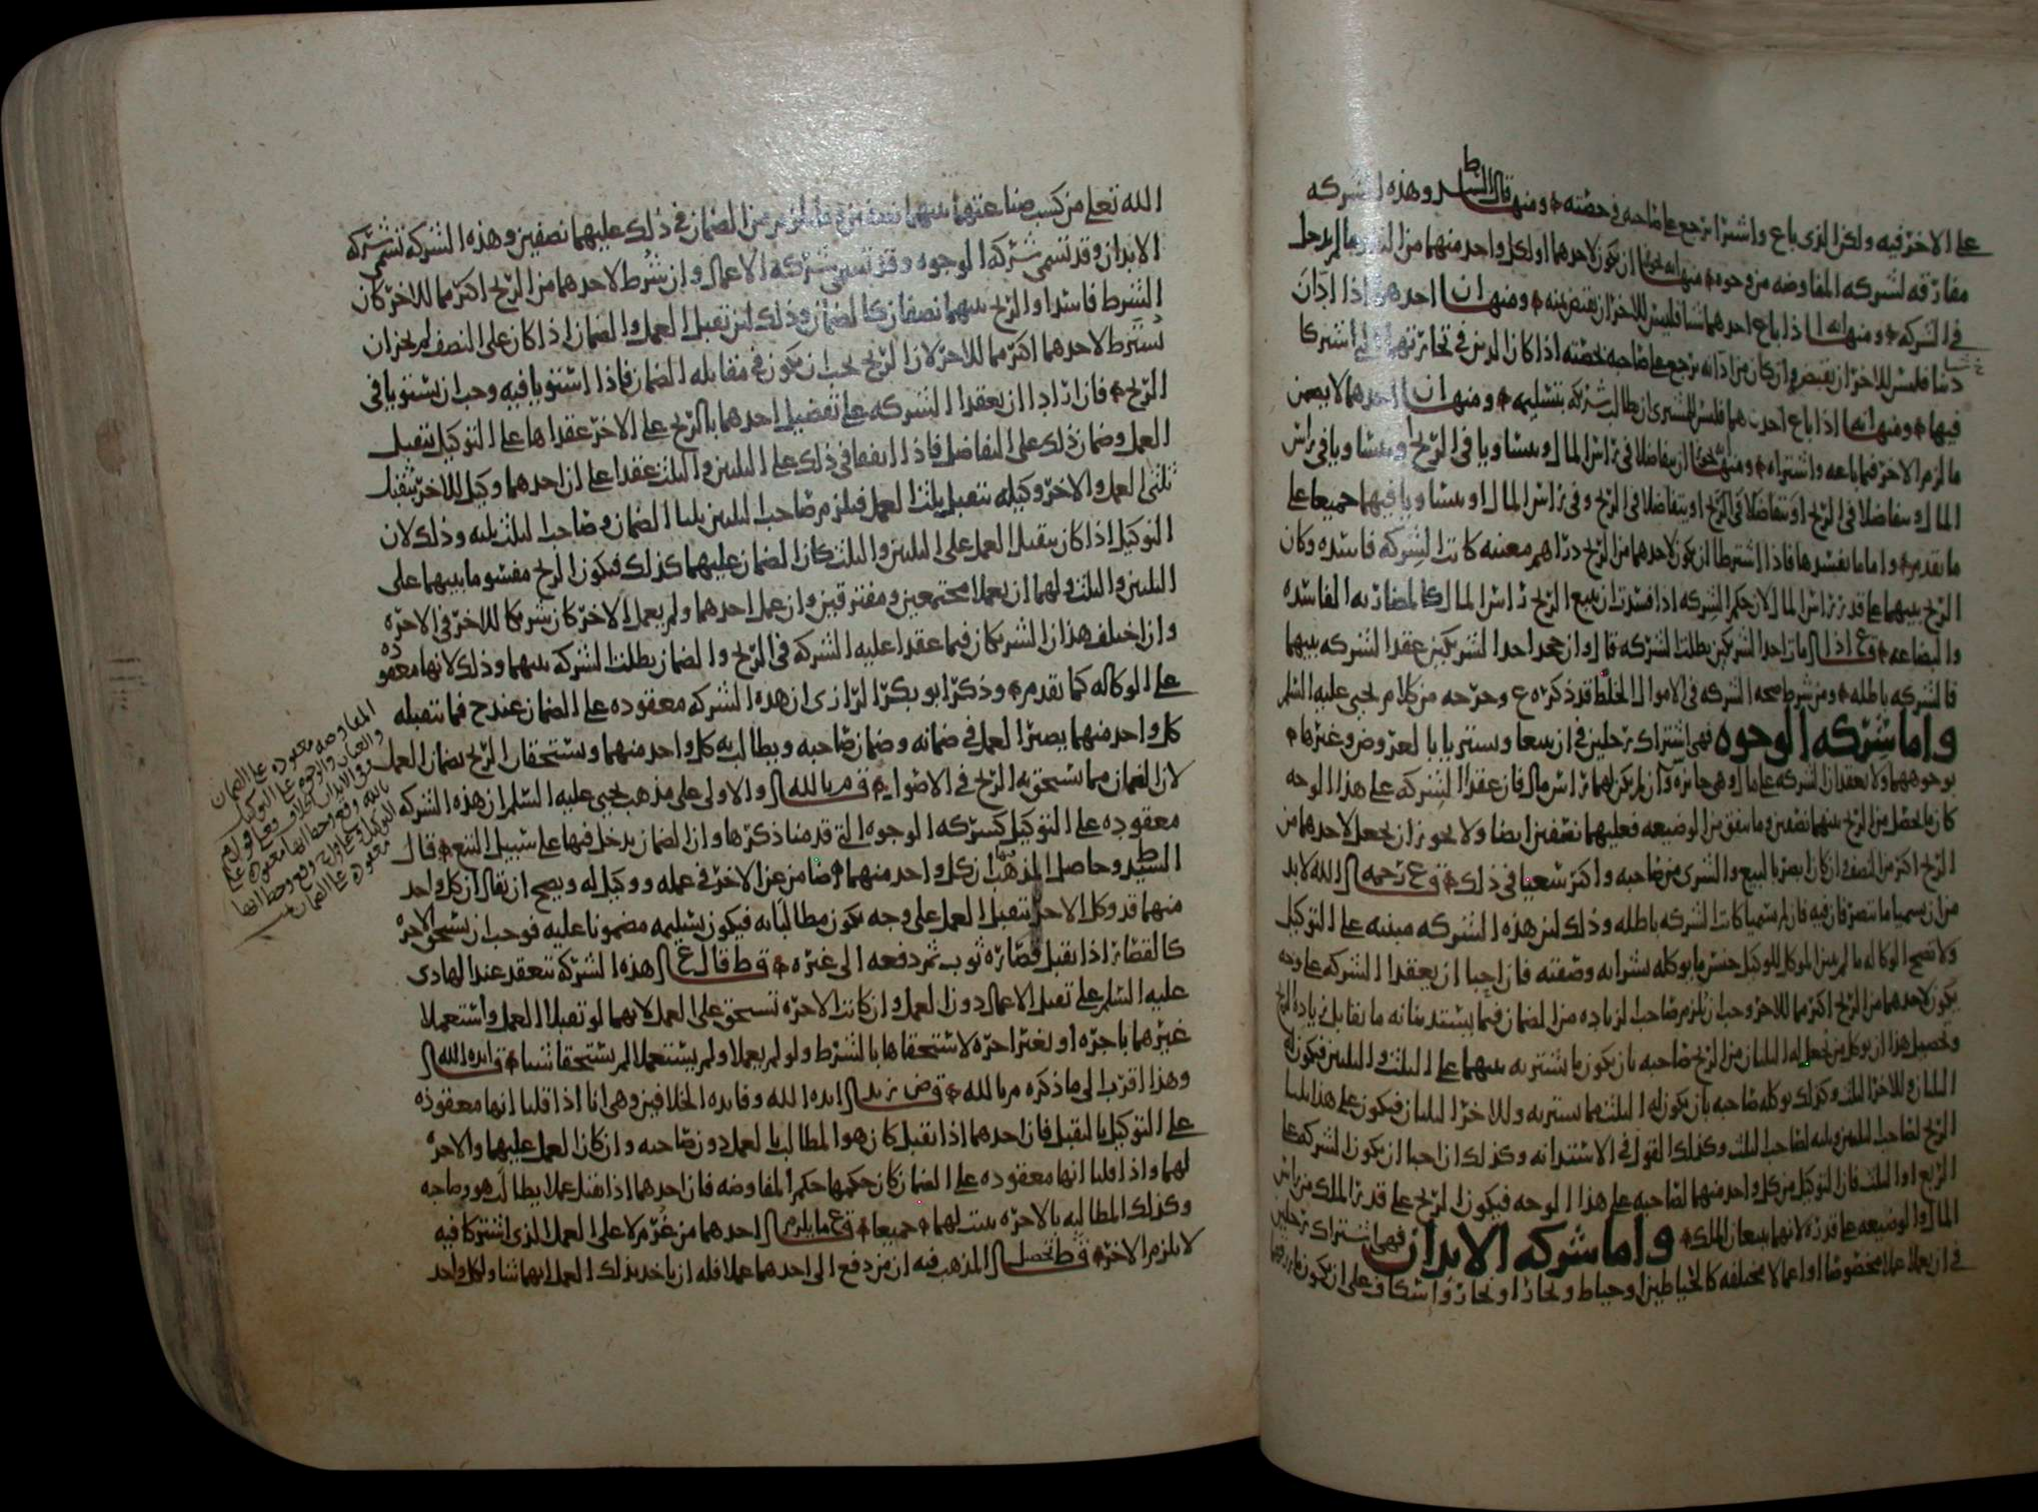 على الاخر فيه ولكن الذي باع واشترا يرجع على صاحبه في حصته ومنها قال السيد ط وهذه الشركه
مفارقه لشركه المفاوضه من وجوه منها انه يجوز ان يكون لاحدهما او لكل واحد منهما من النقد ما لم يدخل
في الشركه ومنها انه اذا باع احدهما شيا فليس للاخر ان يقبض ثمنه ومنها ان احدهما اذا ادان
دينا فليس للاخر ان يقبضه وان كان من ادانه يرجع على صاحبه بحصته اذا كان الدين في تجارتهما التي اشتركا
فيها ومنها انه اذا باع احدهما فليس للمشتري ان يطالب شريكه بتسليمه ومنها ان احدهما لا يضمن
ما لزم الاخر فيما باعه واشتراه ومنها انه يجوز ان يتفاضلا في راس المال ويتساويا في الربح ويتساويا في راس
المال ويتفاضلا في الربح او يتفاضلا في الربح وفي راس المال او يتساويا فيهما جميعا على
ما تقدم واما ما يفسدها فاذا اشترطا ان يكون لاحدهما من الربح دراهم معينه كانت الشركه فاسده وكان
الربح بينهما على قدر راس المال لان حكم الشركه اذا فسدت ان يتبع الربح راس المال كالمضاربه الفاسده
والبضاعه فرع اذا مات احد الشريكين بطلت الشركه قال وان جحد احد الشريكين عقد الشركه بينهما
فالشركه باطله ومن شرط صحه الشركه في الاموال الخلط قد ذكره ع وخرجه من كلام يحيى عليه السلم
واما شركه الوجوه فهي اشتراك رجلين في ان يبيعا ويشتريا بالعروض وغيرها
بوجوههما ولا يعقدان الشركه على مال وهي جائزه وان لم يكن لهما راس مال فان عقدا الشركه على هذا الوجه
كان ما يحصل من الربح بينهما نصفين وما يتفق من الوضيعه فعليهما نصفين ايضا ولا يجوز ان يجعل لاحدهما من
الربح اكثر من النصف وان كان ابصر بالبيع والشرى من صاحبه واكثر سعيا في ذلك فرع رحمه الله لا بد
من ان يسميا ما يتصرفان فيه فان لم يسميا كانت الشركه باطله وذلك لان هذه الشركه مبنيه على التوكيل
ولا تصح الوكاله ما لم يبين الموكل للوكيل جنس ما يوكله بشرائه وصفته فان احبا ان يعقدا الشركه على وجه
يكون لاحدهما من الربح اكثر مما للاخر وجب ان يلزم صاحب الزياده من الضمان فيما يستدينانه ما يقابل زياده الربح
وتحصيل هذا ان يوكل من يجعل له الثلثان من الربح صاحبه بان يكون ما يشتريه بينهما على الثلث والثلثين فيكون له
الثلثان وللاخر الثلث وكذلك يوكله صاحبه بان يكون له الثلث مما يشتريه وللاخر الثلثان فيكون على هذا ثلثا
الربح لصاحب الثلثين وثلثه لصاحب الثلث وكذلك القول في الاستدانه وكذلك ان احبا ان يكون الشركه على
الربع او الثلث فان التوكيل من كل واحد منهما لصاحبه على هذا الوجه فيكون الربح على قدر الملك من راس
المال والوضيعه على قدره لانهما يتبعان الملك واما شركه الابدان فهي اشتراك رجلين
في ان يعملا عملا مخصوصا او اعمالا مختلفه كالخياطين او خياط ونجار او نجار واسكاف على ان يكون ما رزقهما
الله تعلى من كسب صناعتهما بينهما نصفين وما يلزم من الضمان في ذلك عليهما نصفين وهذه الشركه تسمى شركه
الابدان وقد تسمى شركه الوجوه وقد تسمى شركه الاعمال وان شرط لاحدهما من الربح اكثر مما للاخر كان
الشرط فاسدا والربح بينهما نصفان كالضمان وذلك لان تقبل العمل والضمان اذا كان على النصف لم يجز ان
يشترط لاحدهما اكثر مما للاخر لان الربح يجب ان يكون في مقابله الضمان فاذا استويا فيه وجب ان يستويا في
الربح فان ارادا ان يعقدا الشركه على تفضيل احدهما بالربح على الاخر عقداها على التوكيل بتقبل
العمل وضمان ذلك على التفاضل فاذا اتفقا في ذلك على الثلثين والثلث عقدا على ان احدهما وكيل للاخر بتقبل
ثلثي العمل والاخر وكيله بتقبل ثلث العمل فيلزم صاحب الثلثين ثلثا الضمان وصاحب الثلث ثلثه وذلك لان
التوكيل اذا كان بتقبل العمل على الثلثين والثلث كان الضمان عليهما كذلك فيكون الربح مقسوما بينهما على
الثلثين والثلث ولهما ان يعملا مجتمعين ومفترقين وان عمل احدهما ولم يعمل الاخر كان شريكا للاخر في الاجره
وان اختلف هذان الشريكان فيما عقدا عليه الشركه في الربح والضمان بطلت الشركه بينهما وذلك لانها معقوده
على الوكاله كما تقدم وذكر ابو بكر الرازي ان هذه الشركه معقوده على الضمان عند ح فما تتقبله
كل واحد منهما يصير العمل في ضمانه وضمان صاحبه ويطالب به كل واحد منهما ويستحقان الربح بضمان العمل
لان الضمان مما يستحق به الربح في الاصول قم بالله والاولى على مذهب يحيى عليه السلم ان هذه الشركه
معقوده على التوكيل كشركه الوجوه التي قدمنا ذكرها وان الضمان يدخل فيها على سبيل التبع قال
السيد ط وحاصل المذهب ان كل واحد منهما ضامن عن الاخر في عمله ووكيل له ويصح ان يقال ان كل واحد
منهما قد وكل الاخر بتقبل العمل على وجه يكون مطالبا به فيكون تسليمه مضمونا عليه فوجب ان يستحق الاجره
كالقصار اذا تقبل قصاره ثوب ثم دفعه الى غيره قط قال ع هذه الشركه تنعقد عند الهادي
عليه السلم على تقبل الاعمال دون العمل وان كانت الاجره تستحق على العمل لانهما لو تقبلا العمل واستعملا
غيرهما باجره او بغير اجره لاستحقاها بالشرط ولو لم يعملا ولم يستعملا لم يستحقا شيا ايده الله
وهذا اقرب الى ما ذكره م بالله قض زيد ايده الله وفايده الخلافين وهي انا اذا قلنا انها معقوده
على التوكيل بالتقبل فان احدهما اذا تقبل كان هو المطالب بالعمل دون صاحبه وان كان العمل عليهما والاجره
لهما واذا قلنا انها معقوده على الضمان كان حكمها حكم المفاوضه فان احدهما اذا تقبل عملا يطالب هو وصاحبه
وكذلك المطالبه بالاجره يثبت لهما جميعا فرع ما يلزم احدهما من غرم لا على العمل الذي اشتركا فيه
لا يلزم الاخر قط تحصيل المذهب فيه ان من دفع الى احدهما عملا فله ان ياخذ بذلك العمل ايهما شا ولكل واحد
المفاوضه معقوده على الضمان
والعنان والوجوه على التوكيل
وفي الابدان خلاف
معقوده على الضمان